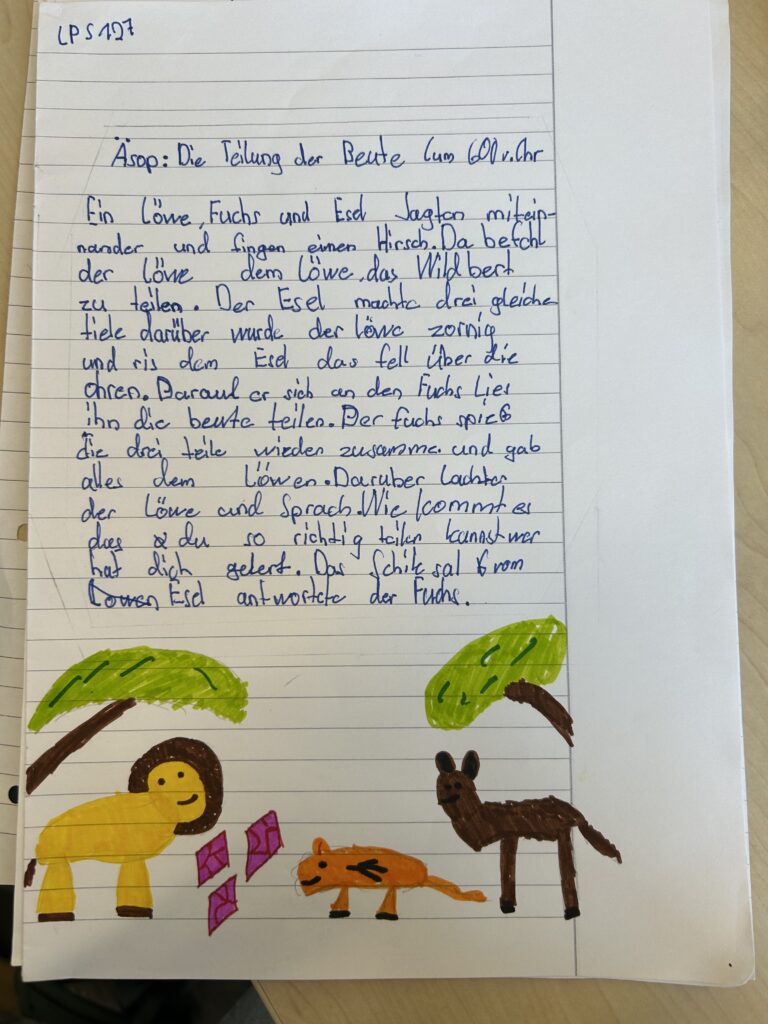 LPS127
Äsop: Die Teilung der Beute (um 600 v. Chr
Ein Löwe, Fuchs und Esel Jagton mitein-
nander und fingen einen Hirsch. Da befohl
der Löwe dem Löwe, das Wildbert
zu teilen. Der Esel machte drei gleiche
tiele darüber wurde der löwe zornig
und ris dem Esel das fell über die
ohren. Darauf er sich an den Fuchs Lies
ihn die beute teilen. Der fuchs spieß
die drei teile wieder zusamme. und gab
alles dem Löwen. Darüber lachter
der Löwe und Sprach. Wie kommt es
das du so richtig teilen kannst wer
hat dich gelert. Das Schiksal vom
Esel antwortete der Fuchs.